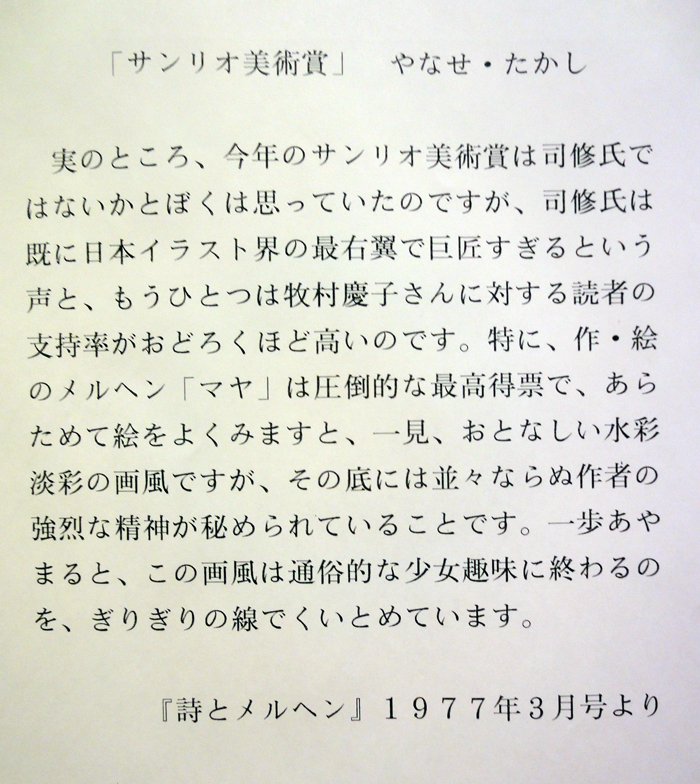 「サンリオ美術賞」　やなせ・たかし
実のところ、今年のサンリオ美術賞は司修氏で
はないかとぼくは思っていたのですが、司修氏は
既に日本イラスト界の最右翼で巨匠すぎるという
声と、もうひとつは牧村慶子さんに対する読者の
支持率がおどろくほど高いのです。特に、作・絵
のメルヘン「マヤ」は圧倒的な最高得票で、あら
ためて絵をよくみますと、一見、おとなしい水彩
淡彩の画風ですが、その底には並々ならぬ作者の
強烈な精神が秘められていることです。一歩あや
まると、この画風は通俗的な少女趣味に終わるの
を、ぎりぎりの線でくいとめています。
『詩とメルヘン』１９７７年３月号より